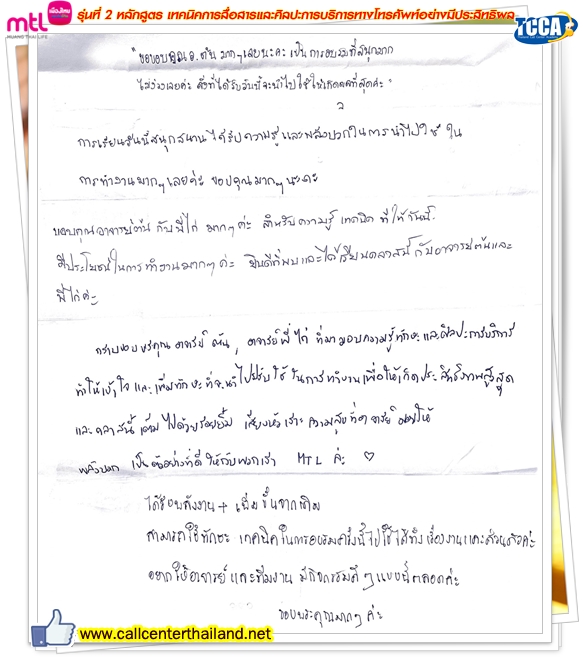 mtl
เมืองไทยประกันชีวิต
MUANG THAI LIFE
รุ่นที่ 2 หลักสูตร เทคนิคการสื่อสารและศิลปะการบริการทางโทรศัพท์อย่างมีประสิทธิผล
TCCA
"ขอขอบคุณ อ.ต้น มากๆเลยนะคะ เป็นการอบรมที่สนุกมาก
ไม่ง่วงเลยค่ะ สิ่งที่ได้รับวันนี้จะนำไปใช้ให้เกิดผลที่สุดค่ะ"
การเรียนวันนี้สนุกสนาน ได้รับความรู้ และพลังบวกในการนำไปใช้ ใน
การทำงานมากๆเลยค่ะ ขอบคุณมากๆนะคะ
ขอบคุณอาจารย์ต้น กับพี่ไก่ มากๆค่ะ สำหรับความรู้ เทคนิค ที่ให้วันนี้
มีประโยชน์ในการทำงานมากๆค่ะ ยินดีที่พบและได้เรียนคลาสนี้ กับอาจารย์ต้นและ
พี่ไก่ค่ะ
กราบขอบพระคุณ อาจารย์ ต้น, อาจารย์ พี่ไก่ ที่มามอบความรู้ทักษะและศิลปะการบริการ
ทำให้เข้าใจ และเพิ่มทักษะที่จะนำไปปรับใช้ ในการทำงานเพื่อให้เกิดประสิทธิภาพสูงสุด
และคลาสนี้ เต็มไปด้วยรอยยิ้ม เสียงหัวเราะ ความสุขที่อาจารย์มอบให้
พลังบวก เป็นตัวอย่างที่ดี ให้กับพวกเรา MTL ค่ะ ♡
ได้รับพลังงาน + เพิ่มขึ้นจากเดิม
สามารถใช้ทักษะ เทคนิคในการอบรมครั้งนี้ไปใช้ได้ทั้งเรื่องงานและส่วนตัวค่ะ
อยากให้อาจารย์ และทีมงาน มีกิจกรรมดีๆ แบบนี้ตลอดค่ะ
ขอบพระคุณมากๆ ค่ะ
www.callcenterthailand.net